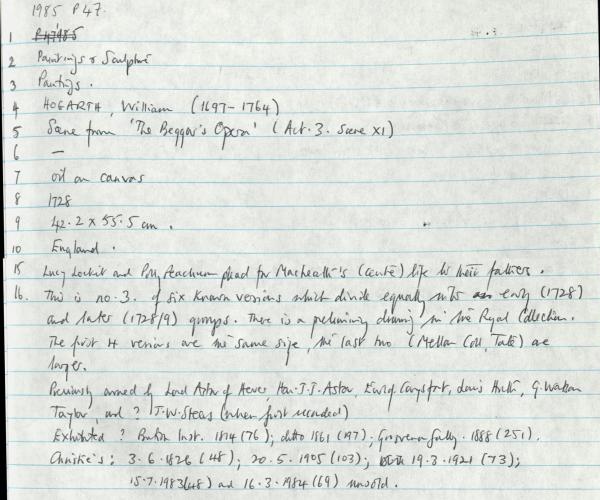 1985 P47.
1 P47'85
2 Paintings & Sculpture
3 Paintings.
4 HOGARTH, William (1697-1764)
5 Scene from 'The Beggar's Opera' (Act.3. Scene XI)
6 —
7 oil on canvas
8 1728
9 42.2 x 55.5 cm.
10 England.
15 Lucy Lockit and Polly Peachum plead for Macheath's (centre) life to their fathers.
16. This is no.3. of six known versions which divide equally into an early (1728)
and later (1728/9) groups. There is a preliminary drawing in the Royal Collection.
The first 4 versions are the same size, the last two (Mellon Coll, Tate) are
larger.
Previously owned by Lord Astor of Hever, Hon. J.J. Astor, Earl of Carysfort, Louis Huth, G. Watson
Taylor, and ? J.W. Steers (when first recorded)
Exhibited ? British Inst. 1814 (76); ditto 1861 (197); Grosvenor Gally. 1888 (251).
Christie's: 3.6.1826 (48); 20.5.1905 (103); 19.3.1921 (73);
15.7.1983 (48) and 16.3.1984 (69) unsold.